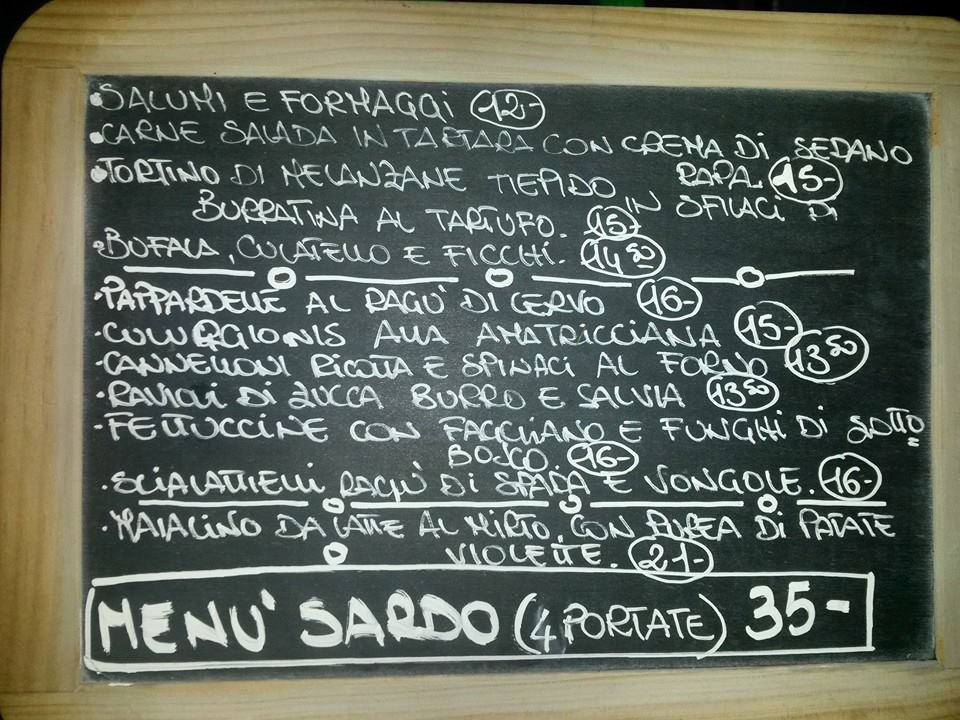 •SALUMI E FORMAGGI 12-
•CARNE SALADA IN TARTARA CON CREMA DI SEDANO
RAPA. 15-
•TORTINO DI MELANZANE TIEPIDO IN SFILACI DI
BURRATINA AL TARTUFO. 15-
•BUFALA, CULATELLO E FICCHI. 14 50
•PAPPARDELLE AL RAGU' DI CERVO 16-
•CULURGIONIS ALLA AMATRICCIANA 15-
•CANNELLONI RICOTTA E SPINACI AL FORNO 13 50
•RAVIOLI DI ZUCCA BURRO E SALVIA 13 50
•FETTUCCINE CON FAGGIANO E FUNGHI DI SOTTO
BOSCO. 16-
•SCIALATTIELLI RAGU' DI SPADA E VONGOLE. 16-
•MAIALINO DA LATTE AL MIRTO, CON PUREA DI PATATE
VIOLETTE. 21-
MENU' SARDO (4 PORTATE) 35-